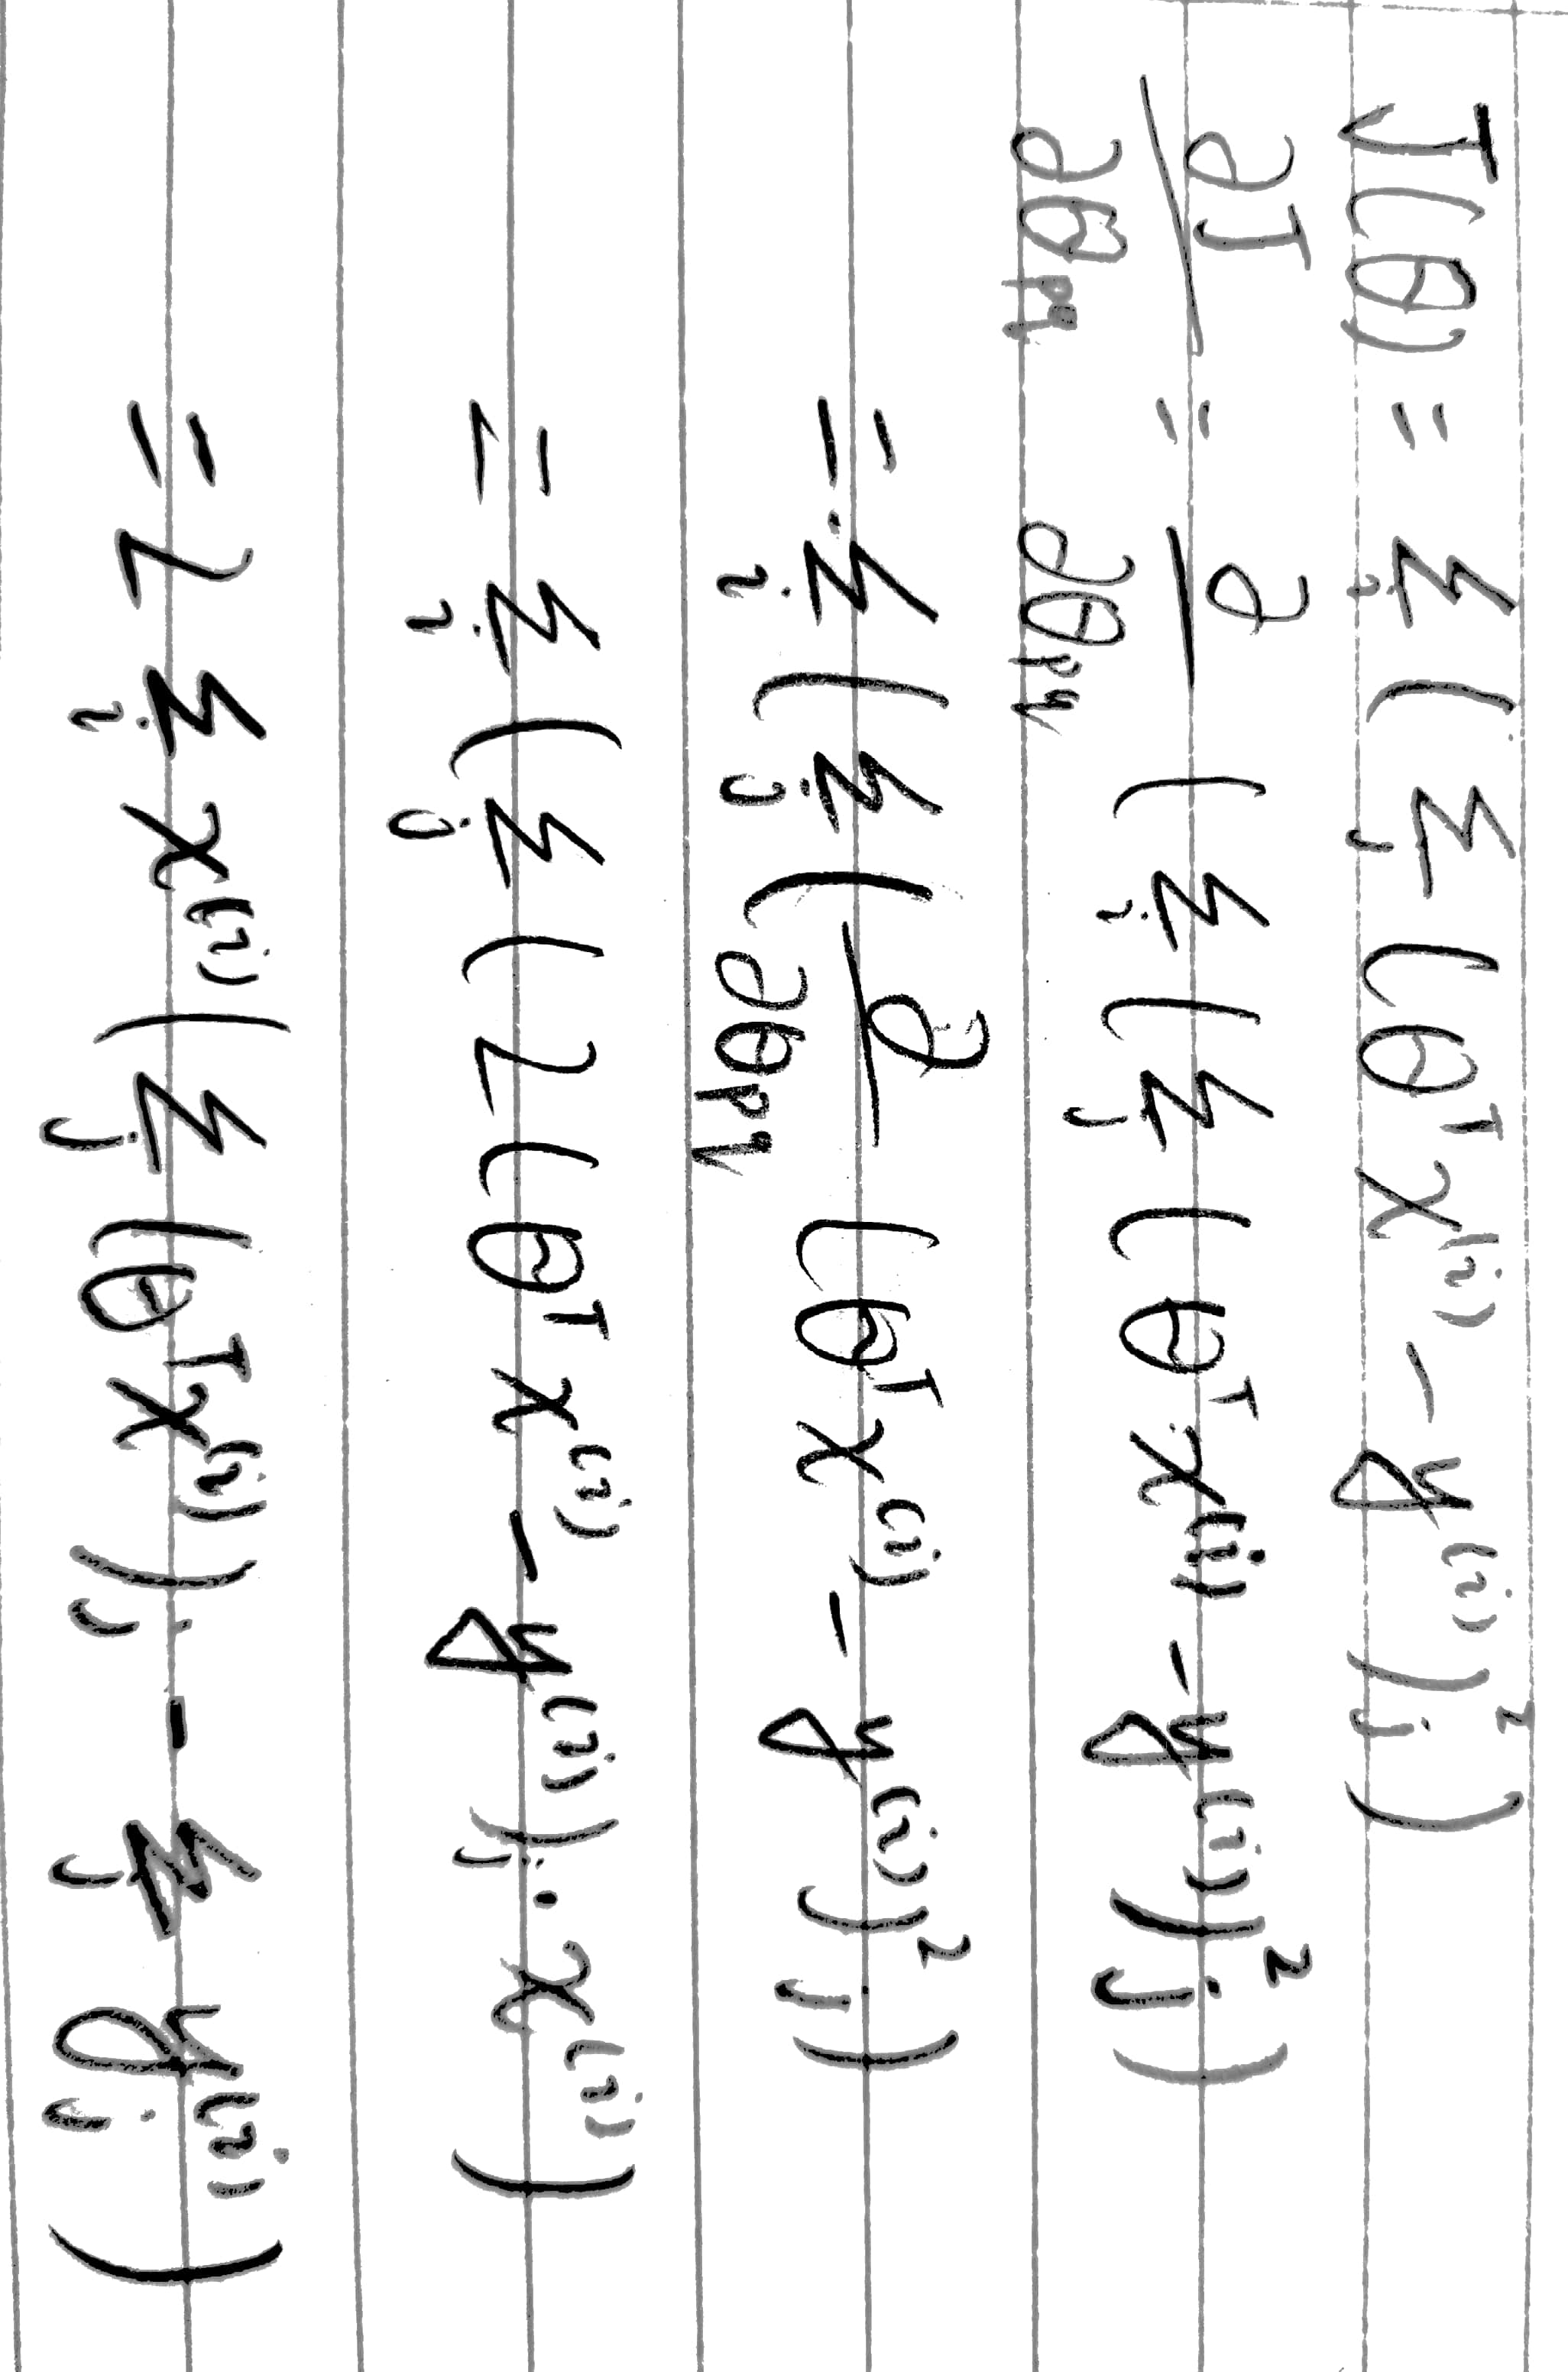 J(θ) = Σ_i ( Σ_j (θ^T x^(i) - y^(i))_j^2 )
∂J/∂θ_pq = ∂/∂θ_pq ( Σ_i ( Σ_j ( θ^T x^(i) - y^(i) )_j^2 )
= Σ_i ( Σ_j ( ∂/∂θ_pq ( θ^T x^(i) - y^(i) )_j^2 )
= Σ_i ( Σ_j ( 2 ( θ^T x^(i) - y^(i) )_j · x^(i) )
= 2 Σ_i x^(i) ( Σ_j ( θ^T x^(i) )_j - Σ_j y_j^(i) )